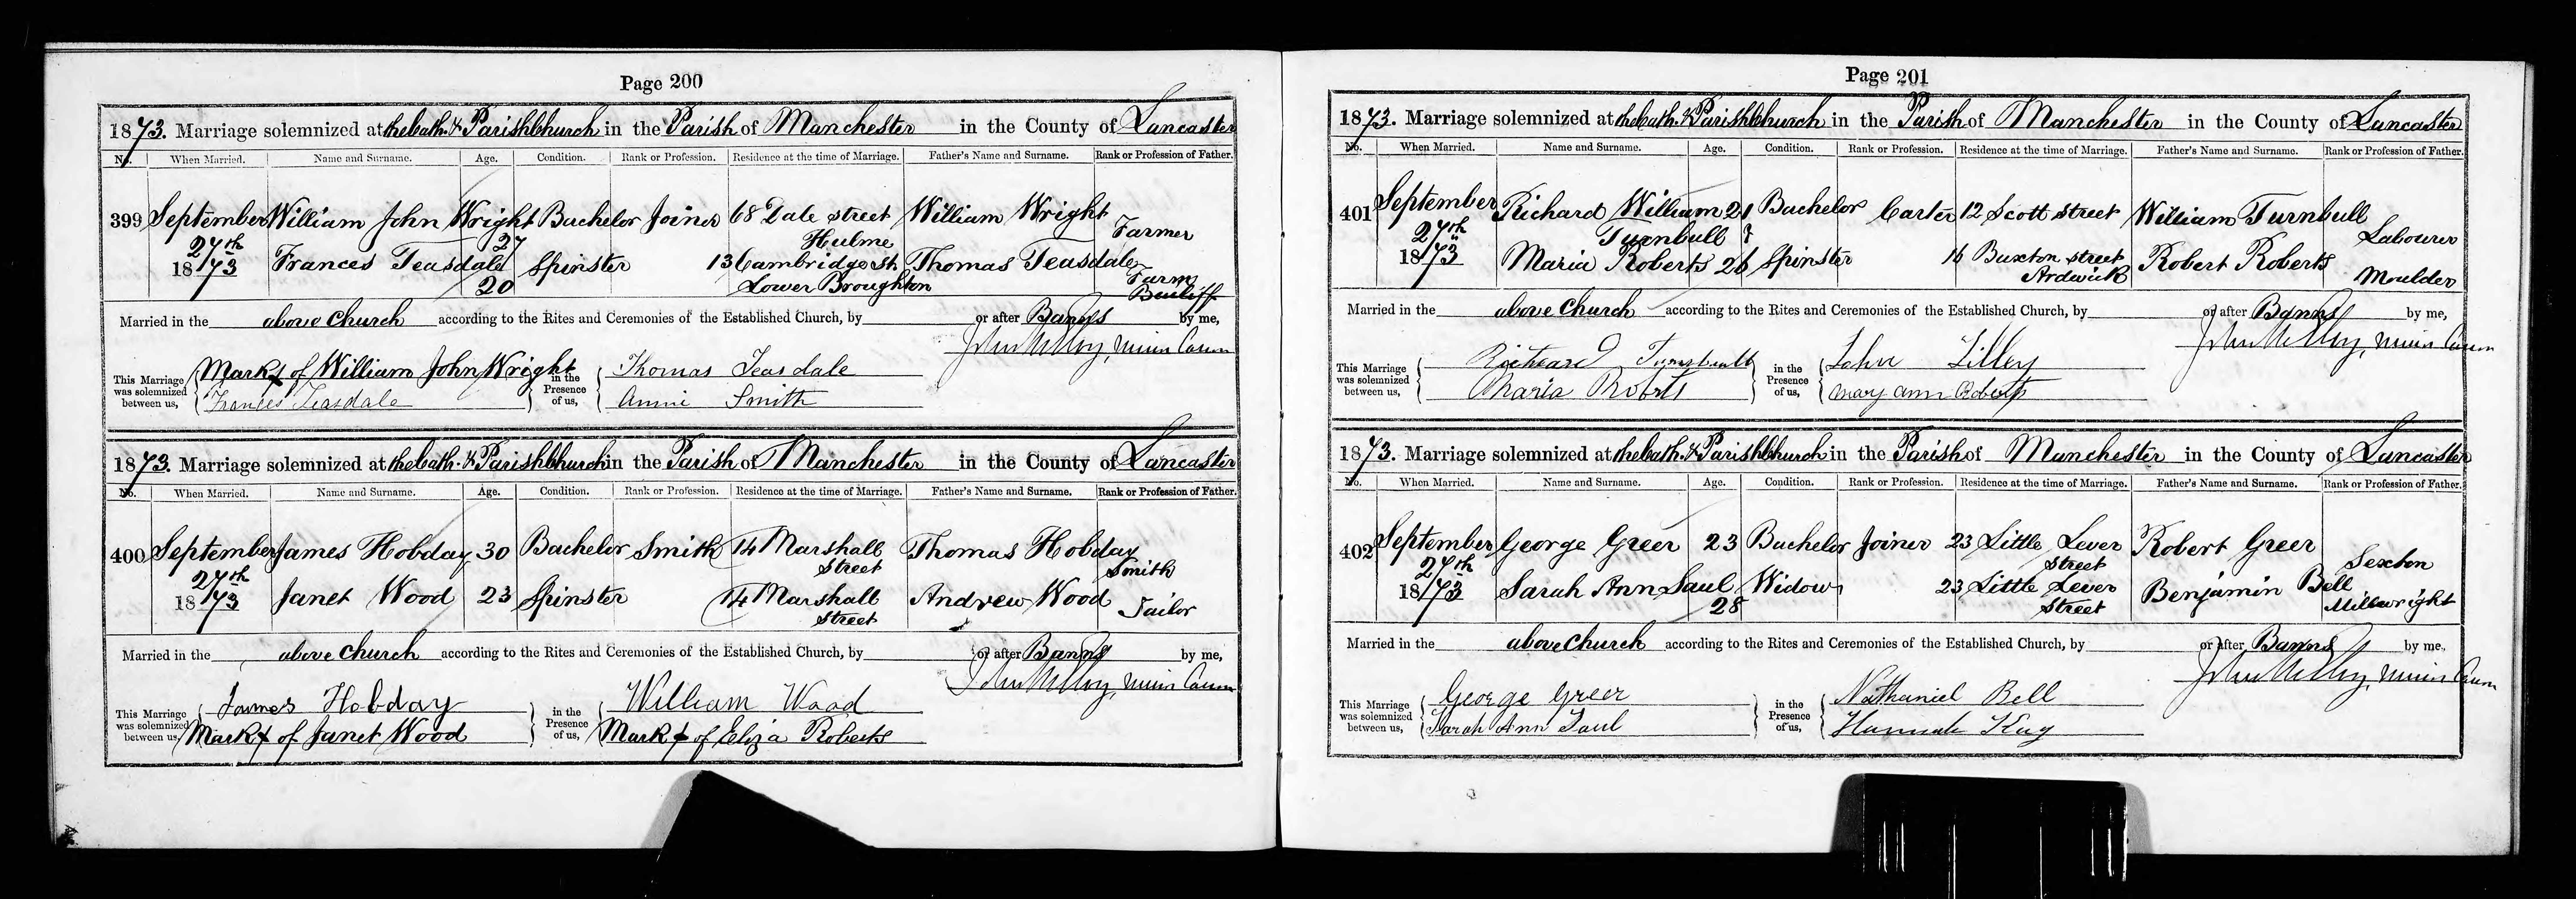 Page 200
1873. Marriage solemnized at the Cath. & Parish Church in the Parish of Manchester in the County of Lancaster
No. When Married. Name and Surname. Age. Condition. Rank or Profession. Residence at the time of Marriage. Father's Name and Surname. Rank or Profession of Father.
399 September William John Wright Bachelor Joiner 68 Dale street William Wright Farmer
27th 27 Hulme
1873 Frances Teasdale Spinster 13 Cambridge St. Thomas Teasdale Farm
20 Lower Broughton Bailiff
Married in the above Church according to the Rites and Ceremonies of the Established Church, by or after Banns by me,
John Minor Canon
This Marriage was solemnized between us, Mark x of William John Wright in the Presence of us, Thomas Teasdale
Frances Teasdale Annie Smith
1873. Marriage solemnized at the Cath. & Parish Church in the Parish of Manchester in the County of Lancaster
No. When Married. Name and Surname. Age. Condition. Rank or Profession. Residence at the time of Marriage. Father's Name and Surname. Rank or Profession of Father.
400 September James Hobday 30 Bachelor Smith 14 Marshall Thomas Hobday
27th Street Smith
1873 Janet Wood 23 Spinster 14 Marshall Andrew Wood Tailor
Street
Married in the above Church according to the Rites and Ceremonies of the Established Church, by or after Banns by me,
John Minor Canon
This Marriage was solemnized between us, James Hobday in the Presence of us, William Wood
Mark x of Janet Wood Mark x of Eliza Roberts
Page 201
1873. Marriage solemnized at the Cath. & Parish Church in the Parish of Manchester in the County of Lancaster
No. When Married. Name and Surname. Age. Condition. Rank or Profession. Residence at the time of Marriage. Father's Name and Surname. Rank or Profession of Father.
401 September Richard William 21 Bachelor Carter 12 Scott Street William Turnbull
27th Turnbull Labourer
1873 Maria Roberts 26 Spinster 16 Buxton street Robert Roberts
Ardwick Moulder
Married in the above Church according to the Rites and Ceremonies of the Established Church, by or after Banns by me,
John Minor Canon
This Marriage was solemnized between us, Richeard Turnbull in the Presence of us, John Lilley
Maria Robrts Mary Ann Roberts
1873. Marriage solemnized at the Cath. & Parish Church in the Parish of Manchester in the County of Lancaster
No. When Married. Name and Surname. Age. Condition. Rank or Profession. Residence at the time of Marriage. Father's Name and Surname. Rank or Profession of Father.
402 September George Greer 23 Bachelor Joiner 23 Little Lever Robert Greer
27th Street Sexton
1873 Sarah Ann Saul Widow 23 Little Lever Benjamin Bell
28 Street Millwright
Married in the above Church according to the Rites and Ceremonies of the Established Church, by or after Banns by me,
John Minor Canon
This Marriage was solemnized between us, George Greer in the Presence of us, Nathaniel Bell
Sarah Ann Saul Hannah Kay